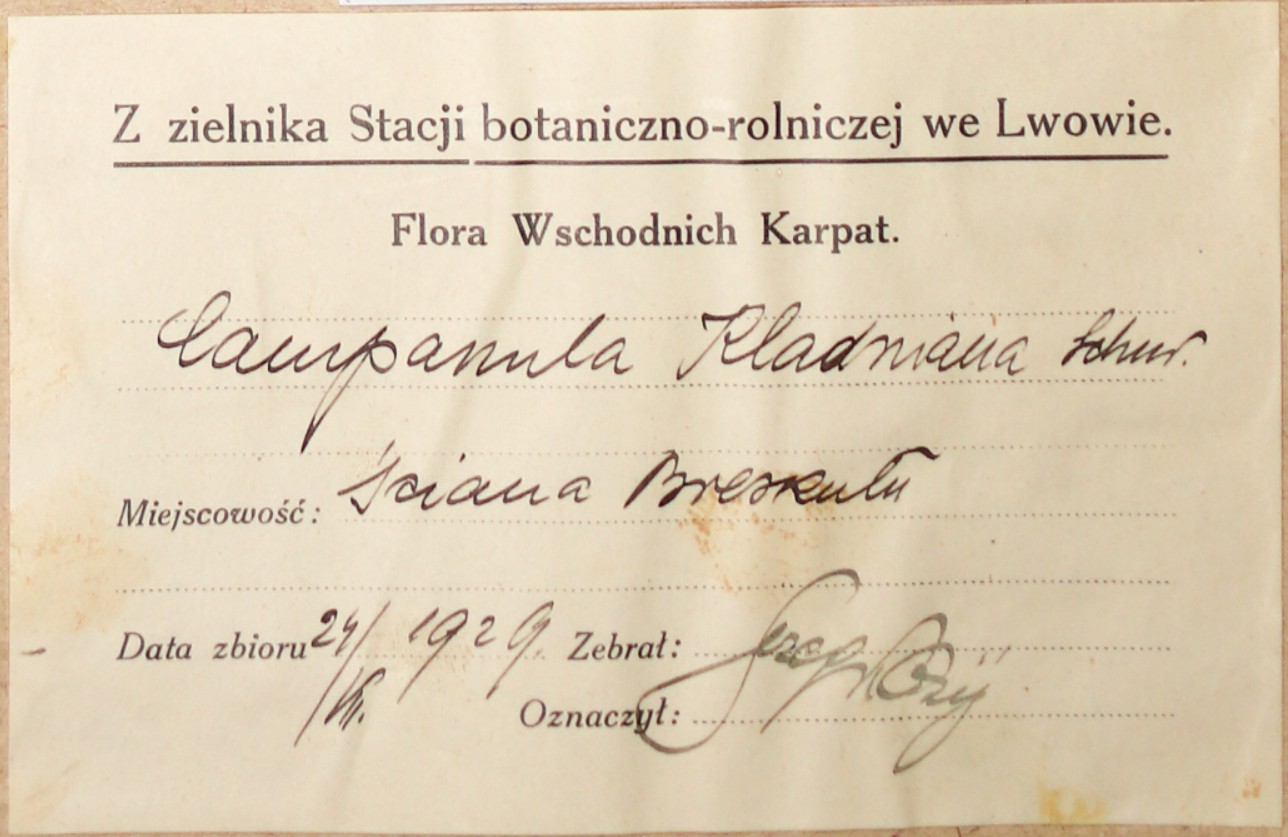 Z zielnika Stacji botaniczno-rolniczej we Lwowie.
Flora Wschodnich Karpat.
Campanula Kladniana Schur.
Miejscowość: Ściana Breskułu
Data zbioru 24/VII. 1929. Zebrał:
Oznaczył: